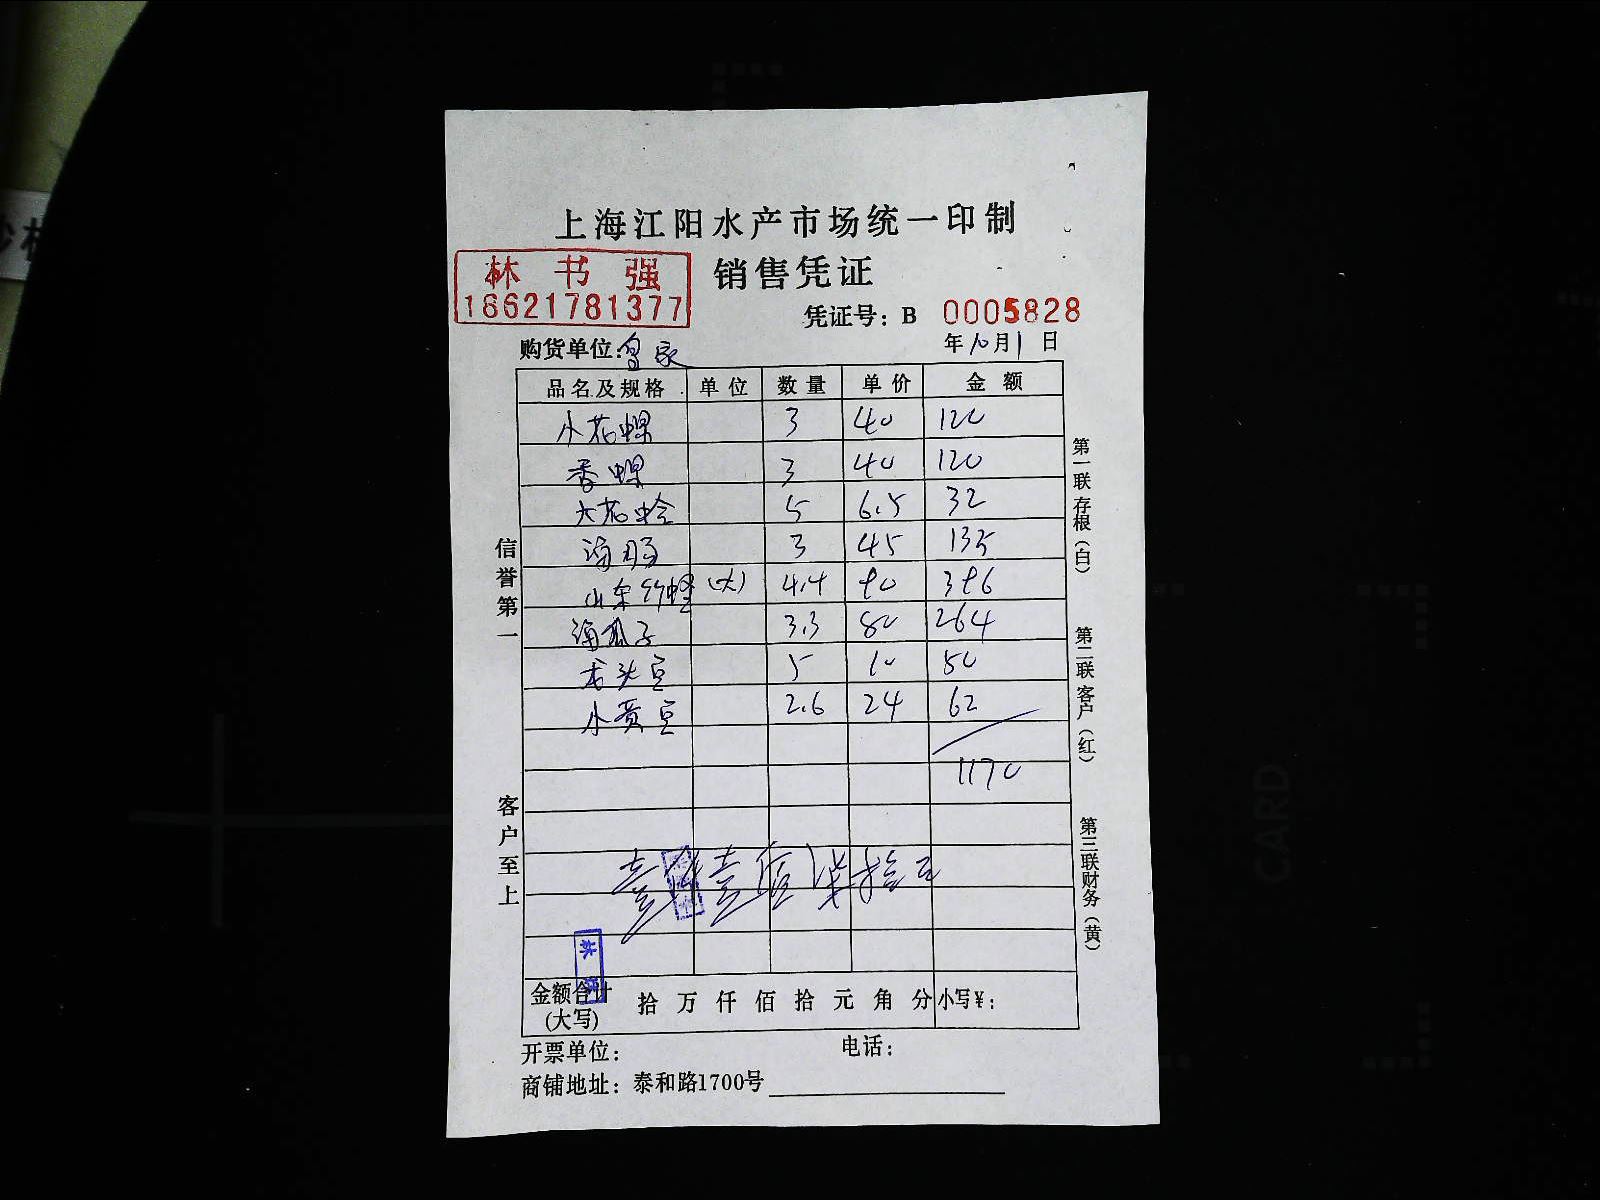 上海江阳水产市场统一印制
销售凭证
林书强
18621781377
凭证号：B 0005828
购货单位：皇家 年10月1日
品名及规格 单位 数量 单价 金额
小花螺 3 40 120
香螺 3 40 120
大花蛤 5 6.5 32
海肠 3 45 135
山东竹蛏(大) 4.4 90 396
海瓜子 3.3 80 264
龙头豆 5 10 50
小黄豆 2.6 24 62
1170
壹仟壹佰柒拾元
金额合计(大写) 拾万仟佰拾元角分 小写¥：
开票单位： 电话：
商铺地址：泰和路1700号
信誉第一
客户至上
第一联存根（白）
第二联客户（红）
第三联财务（黄）
CARD